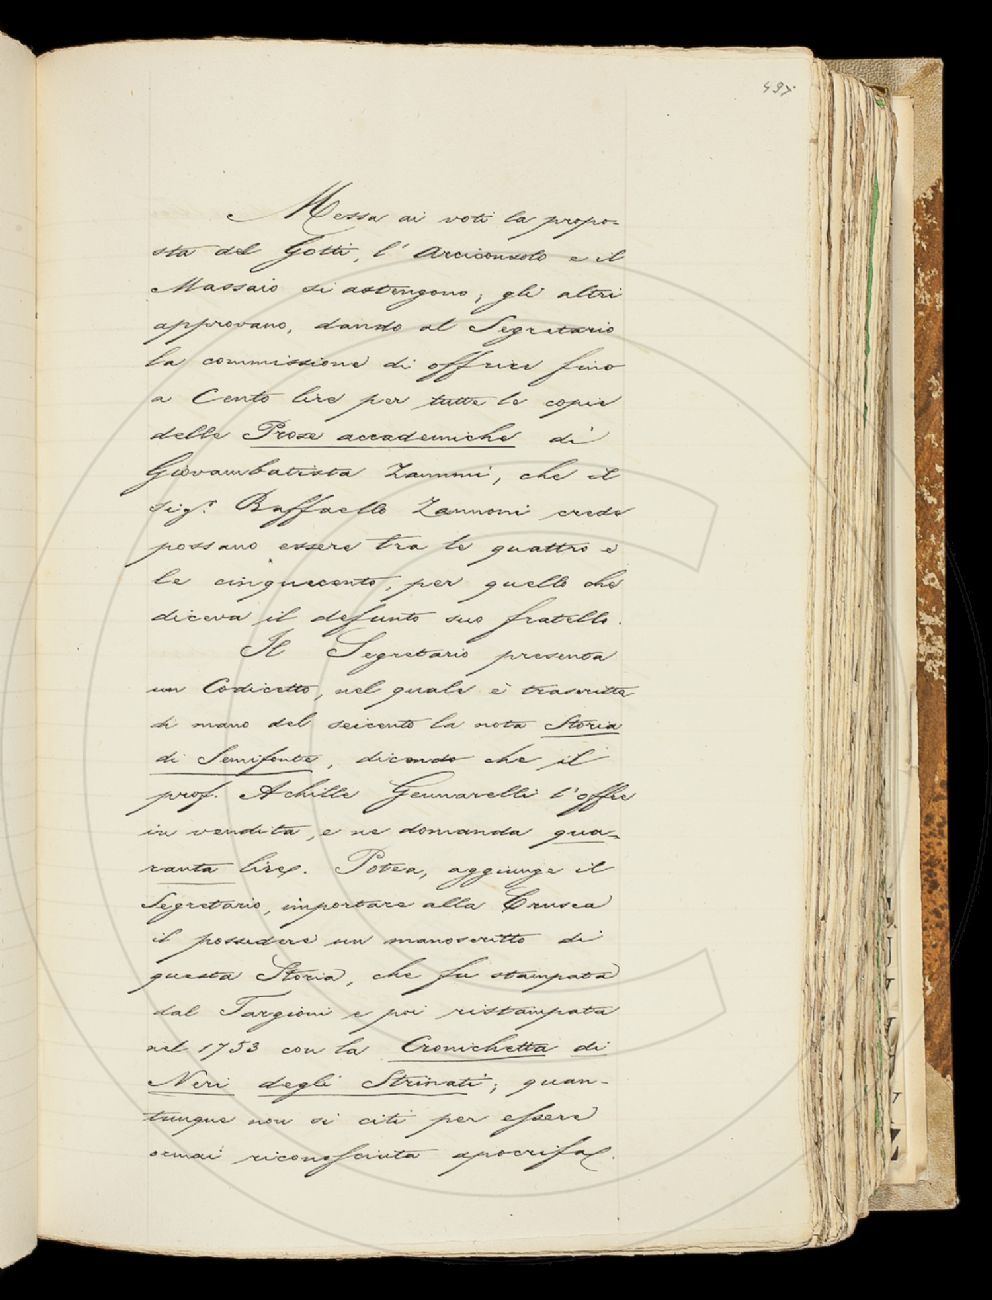 497
Messa ai voti la propo-
sta del Gotti, l'Arciconsolo e il
Massaio si astengono; gli altri
approvano, dando al Segretario
la commissione di offrire fino
a Cento lire per tutte le copie
delle Prose accademiche di
Giovambatista Zannoni, che il
Sig.r Raffaello Zannoni crede
possano essere tra le quattro e
le cinquecento, per quello che
diceva il defunto suo fratello.
Il Segretario presenta
un Codicetto, nel quale è trascritta
di mano del seicento la nota Storia
di Semifonte, dicendo che il
prof. Achille Gennarelli l'offre
in vendita, e ne domanda qua-
ranta lire. Potea, aggiunge il
Segretario, importare alla Crusca
il possedere un manoscritto di
questa Storia, che fu stampata
dal Targioni e poi ristampata
nel 1753 con la Cronichetta di
Neri degli Strinati; quan-
tunque non si citi per essere
ormai riconosciuta apocrifa.